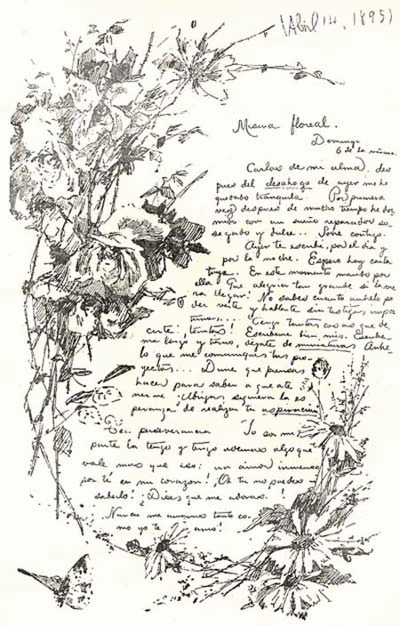 (Abril 14, 1895)
Misiva floreal.
Domingo
6 de la mañana
Carlos de mi alma: des
pues del desahogo de ayer me he
quedado tranquila Por primera
vez despues de mucho tiempo he dor
mido con un sueño reparador so
segado y dulce.. Soñé contigo.
Ayer te escribí, por el dia y
por la noche. Espero hoy carta
tuya. En este momento mando por
ella Que alegria tan grande si la vie
ra llegar! No sabes cuanto anhelo po
der verte y hablarte sin testigos impor
tunos.... Tengo tantas cosas que de
cirte! tantas! Escribeme bien mio. Escribe
me largo y tierno, déjate de miniatura
lo que me comuniques tus pro
yectos... Dime que piensas
hacer para saber a que ate
nerme ¿Abrigas siquiera la es
peranza de realizar tu aspiración
Ten perseverancia Yo por mi
parte la tengo y tengo ademas algo que
vale mas que eso: un amor inmenso
por ti en mi corazon! Oh tu no puedes
saberlo! ¡Dices que me adoras!
Nunca me amaras tanto co
mo yo te amo!